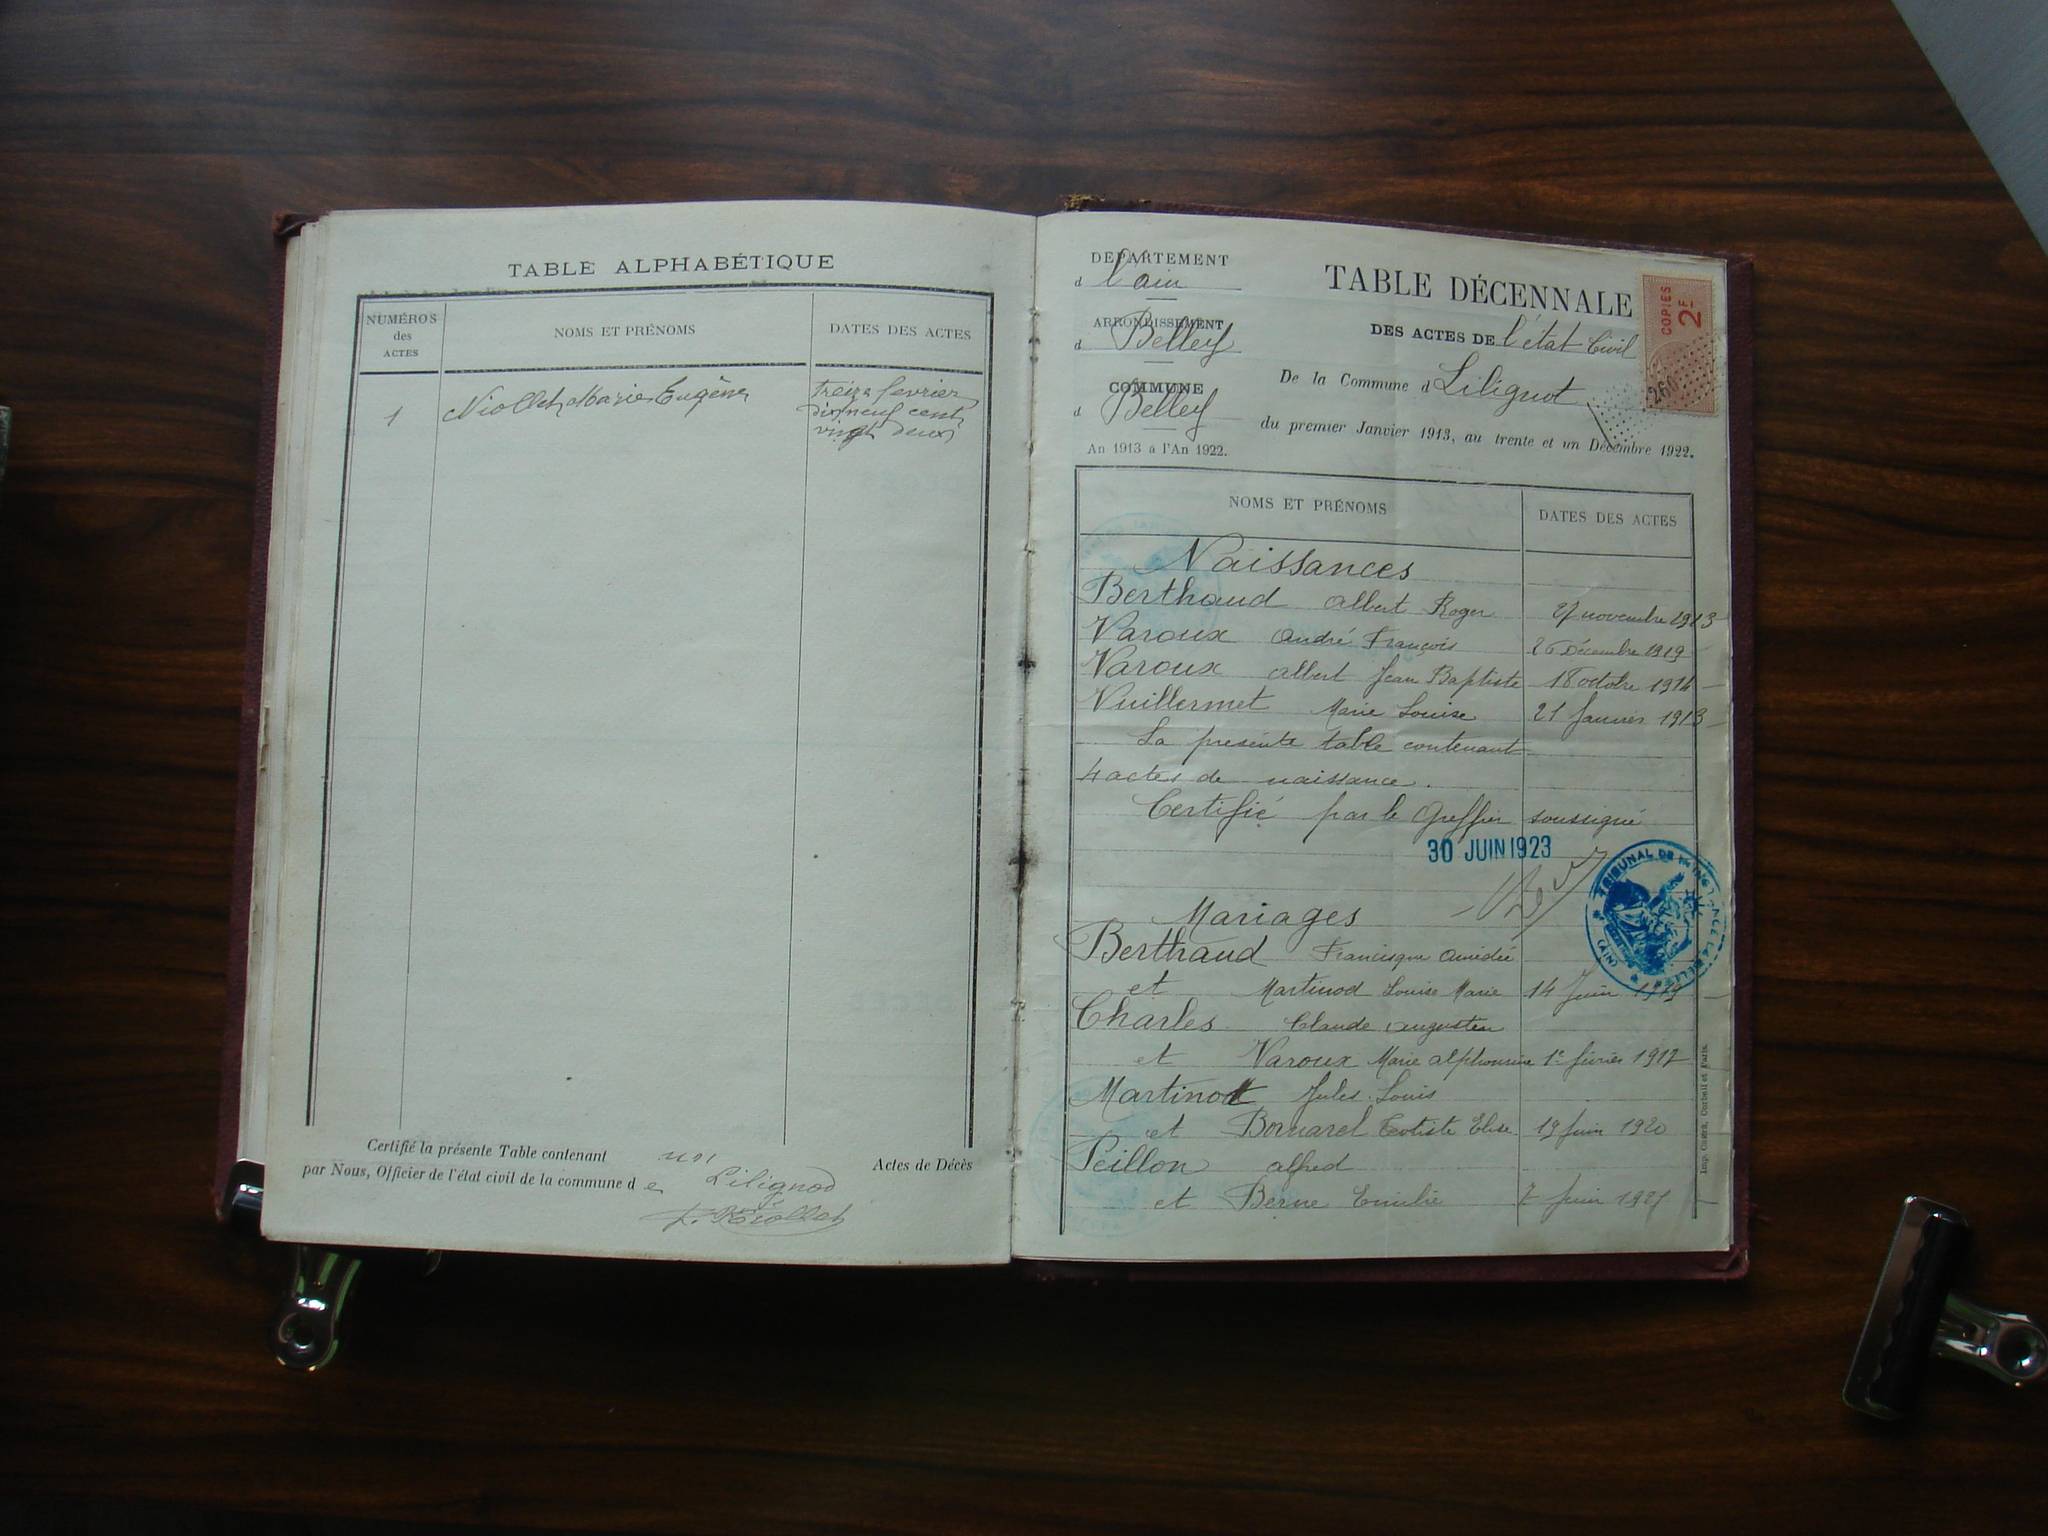 TABLE ALPHABÉTIQUE
NUMÉROS des ACTES
NOMS ET PRÉNOMS
DATES DES ACTES
1 Niollet Marie Eugène treize fevrier
dixneuf cent
vingt deux
Certifié la présente Table contenant un Actes de Décès
par Nous, Officier de l'état civil de la commune de Lilignod
DÉPARTEMENT
d l'ain
ARRONDISSEMENT
d Belley
COMMUNE
d Belley
An 1913 à l'An 1922.
TABLE DÉCENNALE
DES ACTES DE l'état Civil
De la Commune d Lilignot
du premier Janvier 1913, au trente et un Décembre 1922.
COPIES
2F
260
NOMS ET PRÉNOMS
DATES DES ACTES
Naissances
Berthaud albert Roger 27 novembre 1913
Varoux andré François 26 Décembre 1919
Varoux albert Jean Baptiste 18 octobre 1914
Vuillermet Marie Louise 21 Janvier 1913
La présente table contenant
4 actes de naissance.
Certifié par le Greffier soussigné
30 JUIN 1923
TRIBUNAL DE 1ère INSTANCE DE BELLEY
(AIN)
Mariages
Berthaud Francisque amédée
et Martinod Louise Marie 14 Juin 1919
Charles Claude augustin
et Varoux Marie alphonsine 1er février 1917
Martinod Jules Louis
et Bornarel Elise 19 Juin 1920
Peillon alfred
et Berne Emilie 7 Juin 1921
Imp. Corbeil et Paris.